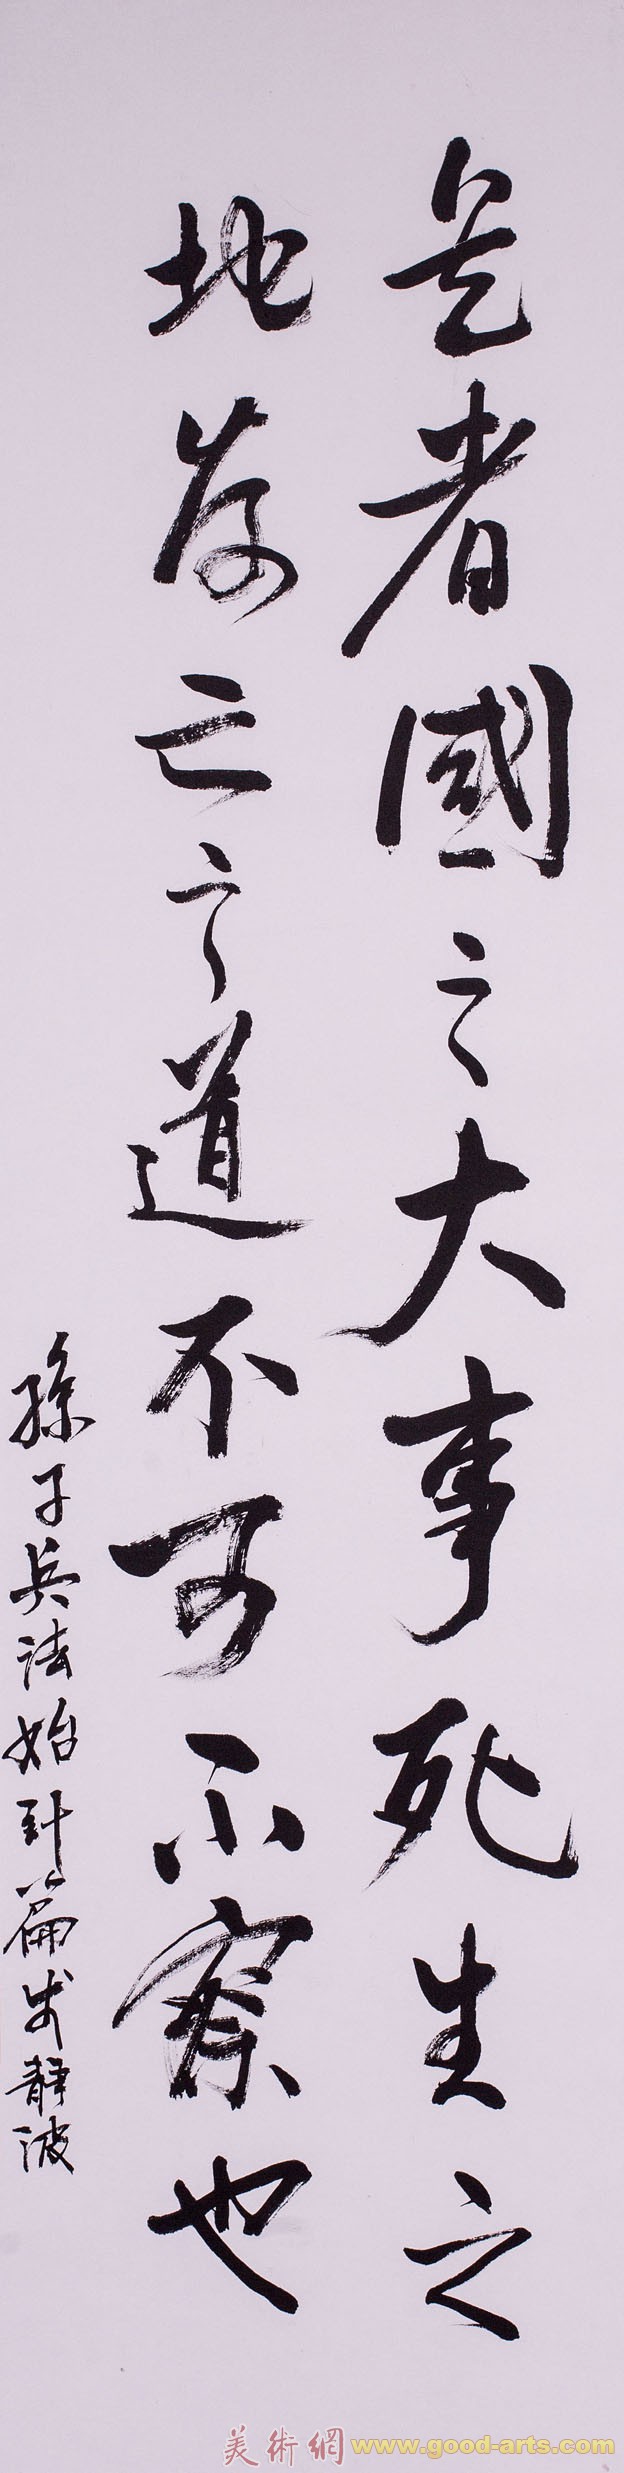 兵者國之大事死生之
地存亡之道不可不察也
孫子兵法始計篇 静波
美術網 www.good-arts.com